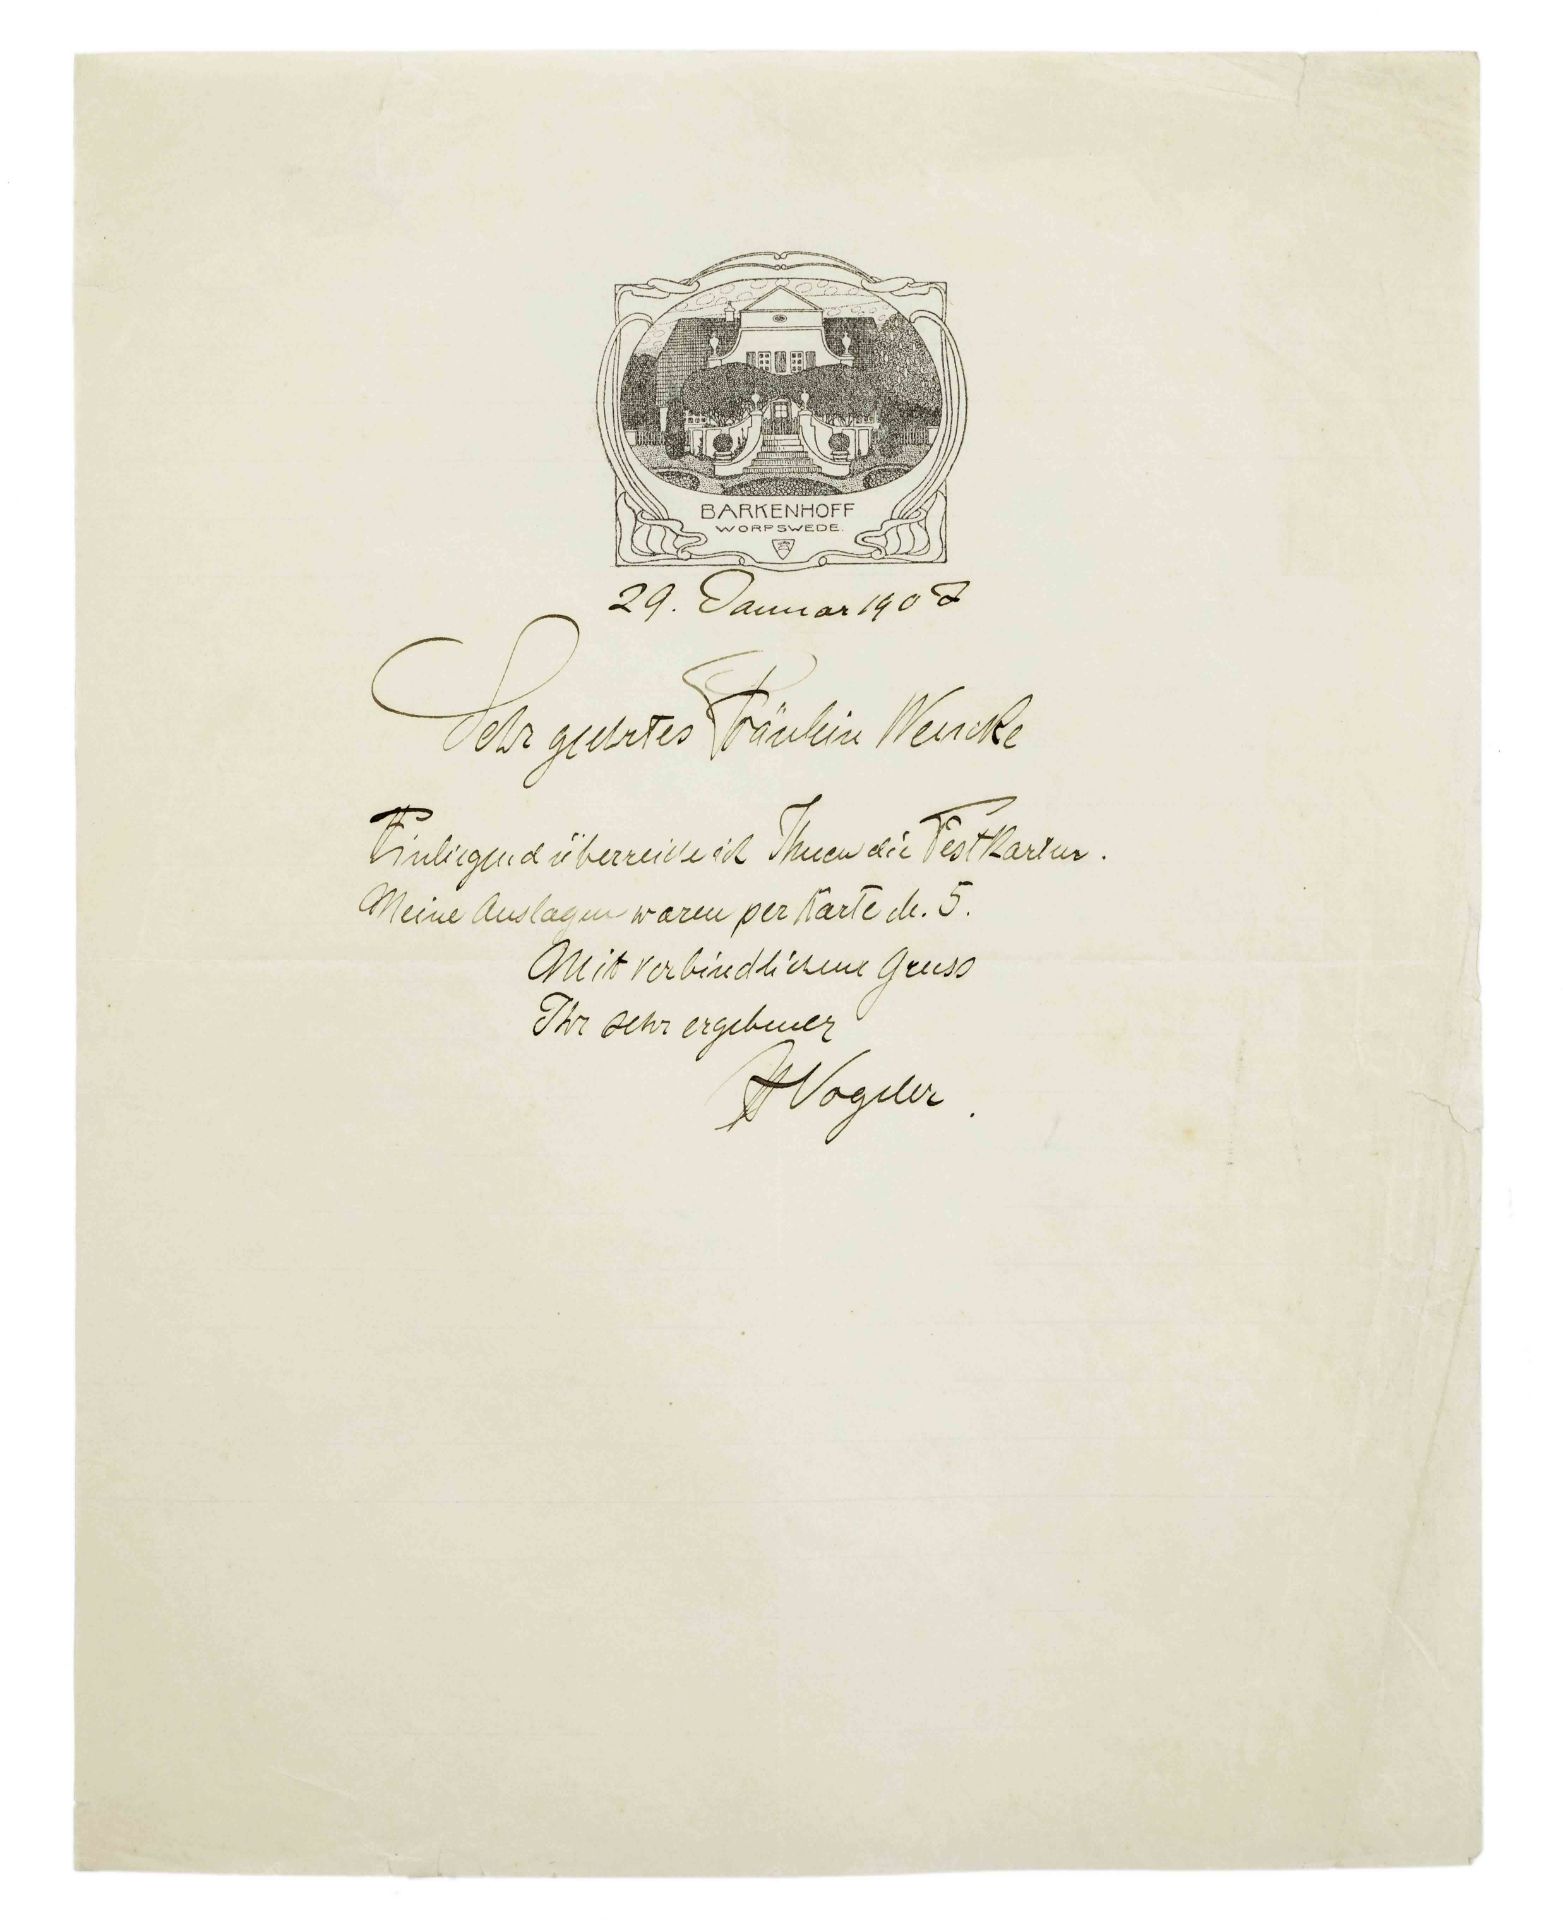 BARKENHOFF
WORPSWEDE.
29. Januar 1907
Sehr geehrtes Fräulein Wencke
Einliegend überreiche ich Ihnen die Festkarten.
Meine Auslagen waren per Karte M. 5.
Mit verbindlichem Gruss
Ihr sehr ergebener
H Vogeler.